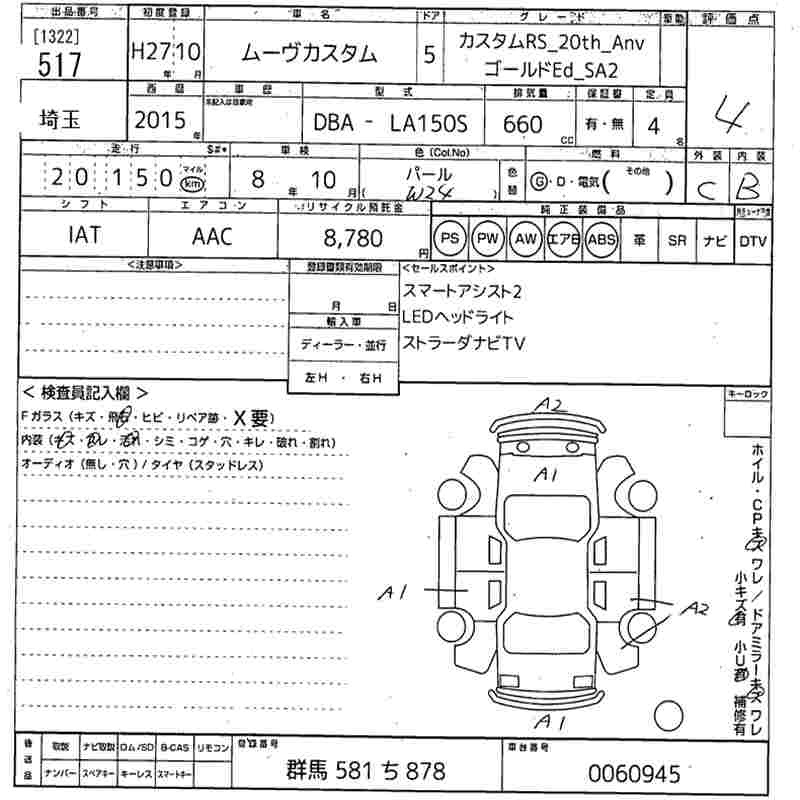 出品番号 初度登録 車名 ドア グレード 駆動 評価点
[1322]
517
H27 10
年 月
ムーヴカスタム
5
カスタムRS_20th_Anv
ゴールドEd_SA2
4
埼玉
西暦 車歴 型式 排気量 保証書 定員
2015 年
DBA - LA150S
660 CC
有・無
4 名
走行 車検 色(Col.No) 色替 燃料 外装 内装
20150 マイル km
8 年 10 月
パール
( W24 )
G・D・電気( その他 )
C B
シフト エアコン リサイクル預託金 純正装備品
IAT AAC 8,780 円
PS PW AW エアB ABS 革 SR ナビ DTV
<注意事項>
登録書類有効期限
月 日
輸入車
ディーラー・並行
左H・右H
<セールスポイント>
スマートアシスト2
LEDヘッドライト
ストラーダナビTV
<検査員記入欄>
Fガラス(キズ・飛石・ヒビ・リペア跡・X要)
内装(・シミ・コゲ・穴・キレ・破れ・割れ)
オーディオ(無し・穴)/タイヤ(スタッドレス)
キーロック
A2
A1
A1
A2
A1
ホイル・CPキズ ワレ/ドアミラーキズ ワレ
小キズ有 小U有 補修有
後送品
取説 ナビ取説 ロム/SD B-CAS リモコン
ナンバー スペアキー キーレス スマートキー
登録番号
群馬 581 ち 878
車台番号
0060945